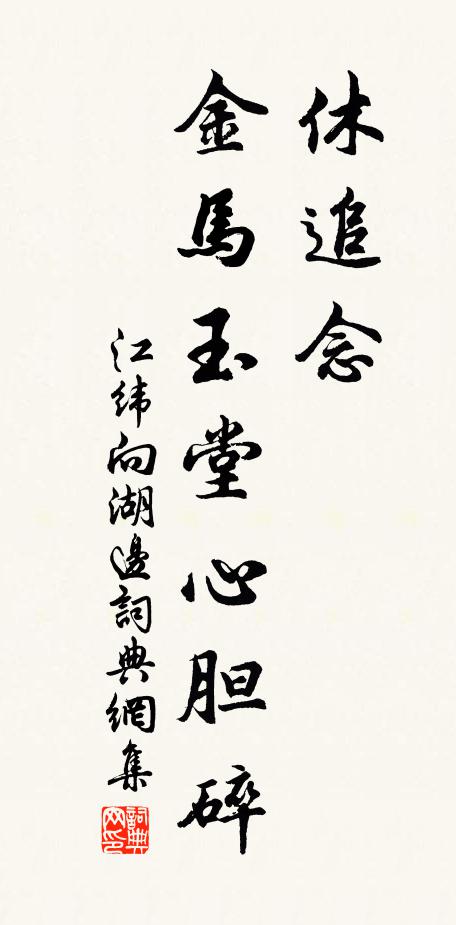 休追念
金馬玉堂心胆碎
江緯向湖邊詞典網集
詞典
网印